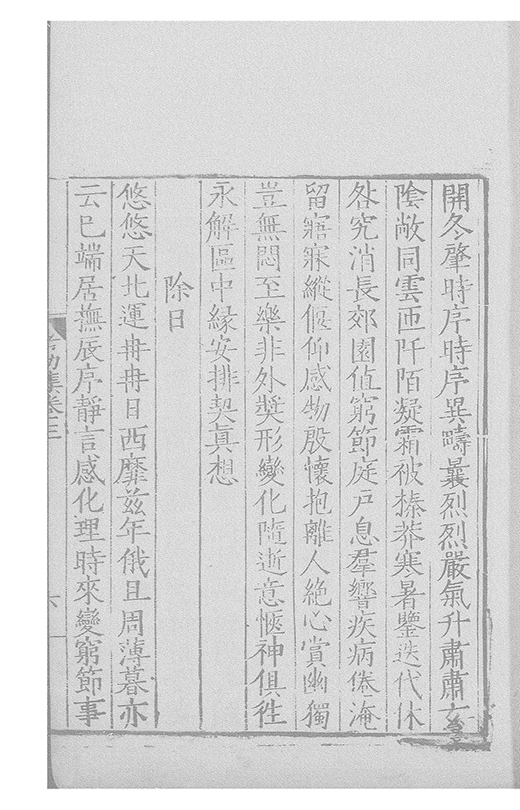 開冬肇時序時序異疇曩烈烈嚴氣升肅肅玄
陰敞同雲匝阡陌凝霜被榛莽寒暑鑒迭代休
咎究消長郊園值窮節庭戶息羣響疾病倦淹
留寤寐縱偃仰感物殷懷抱離人絶心賞幽獨
豈無悶至樂非外奬形變化隨逝意愜神俱徃
永解區中緣安排契真想
除日
悠悠天北運冉冉日西靡兹年俄且周薄暮亦
云已端居撫辰序靜言感化理時來變窮節事
集卷三
六